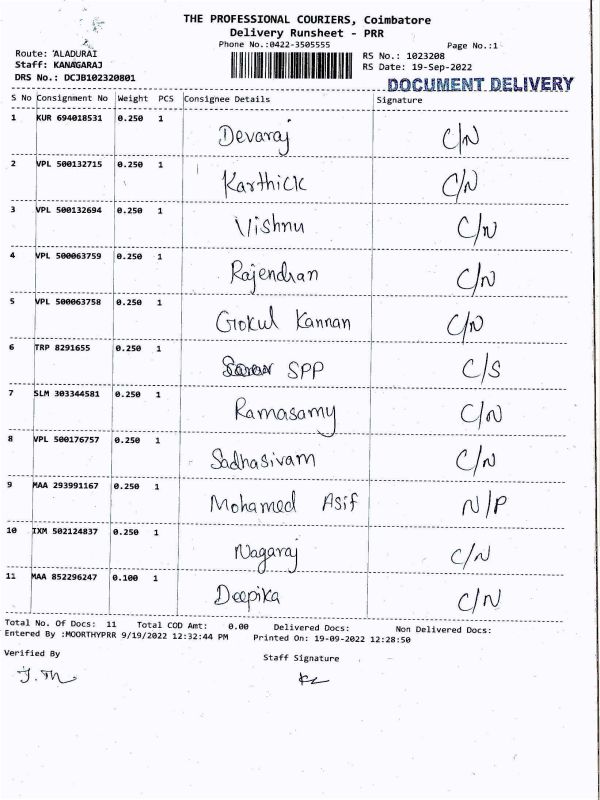 THE PROFESSIONAL COURIERS, Coimbatore
Delivery Runsheet - PRR
Phone No.:0422-3505555 Page No.:1
Route: 'ALADURAI RS No.: 1023208
Staff: KANAGARAJ RS Date: 19-Sep-2022
DRS No.: DCJB102320801
DOCUMENT DELIVERY
S No Consignment No Weight PCS Consignee Details Signature
1 KUR 694018531 0.250 1 Devaraj C/N
2 VPL 500132715 0.250 1 Karthick C/N
3 VPL 500132694 0.250 1 Vishnu C/N
4 VPL 500063759 0.250 1 Rajendran C/N
5 VPL 500063758 0.250 1 Gokul Kannan C/N
6 TRP 8291655 0.250 1 SPP C/S
7 SLM 303344581 0.250 1 Ramasamy C/N
8 VPL 500176757 0.250 1 Sadhasivam C/N
9 MAA 293991167 0.250 1 Mohamed Asif N/P
10 IXM 502124837 0.250 1 Nagaraj C/N
11 MAA 852296247 0.100 1 Deepika C/N
Total No. Of Docs: 11 Total COD Amt: 0.00 Delivered Docs: Non Delivered Docs:
Entered By :MOORTHYPRR 9/19/2022 12:32:44 PM Printed On: 19-09-2022 12:28:50
Verified By Staff Signature